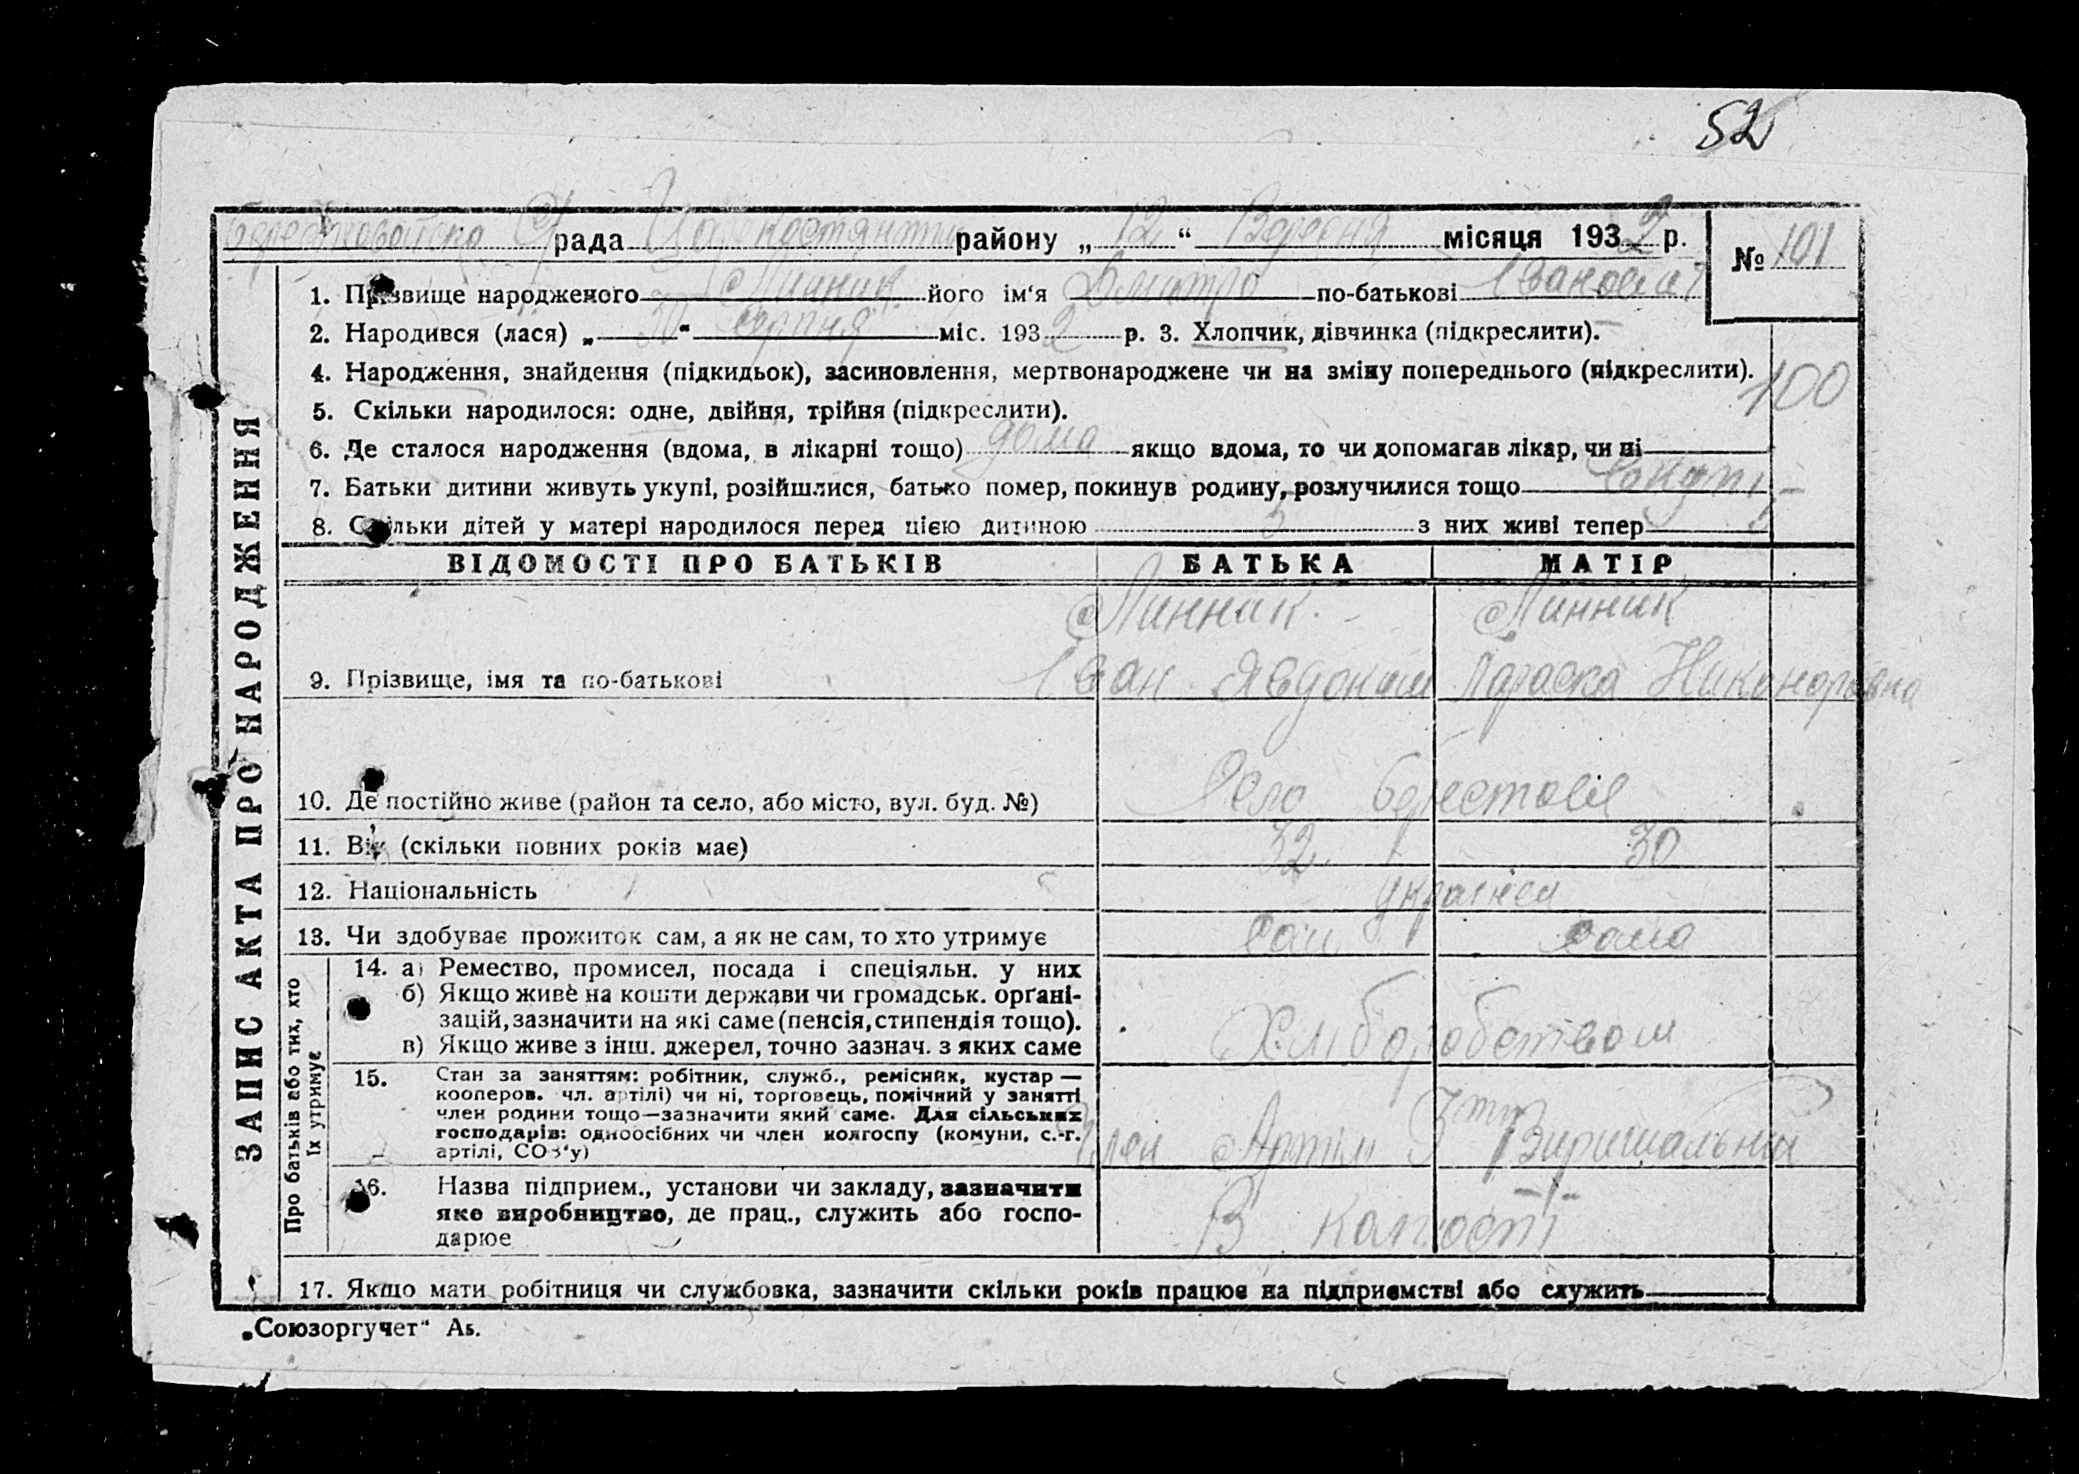 52
рада Костянтин району „ 12 “ Вересня місяця 1932 р. № 101
1. Прізвище народженого Линник його ім‘я Дмитро по-батькові Іванович
2. Народився (лася) „ 30 “ серпня міс. 1932 р. 3. Хлопчик, дівчинка (підкреслити).
4. Народження, знайдення (підкидьок), засиновлення, мертвонароджене чи на зміну попереднього (підкреслити). 100
5. Скільки народилося: одне, двійня, трійня (підкреслити).
6. Де сталося народження (вдома, в лікарні тощо) дома якщо вдома, то чи допомагав лікар, чи ні
7. Батьки дитини живуть укупі, розійшлися, батько помер, покинув родину, розлучилися тощо
8. Скільки дітей у матері народилося перед цією дитиною 3 з них живі тепер
ВІДОМОСТІ ПРО БАТЬКІВ БАТЬКА МАТІР
Линник Линник
9. Прізвище, імя та по-батькові Іван Явдоким Параска Никоноровна
10. Де постійно живе (район та село, або місто, вул. буд. №) Село берестове
11. Вік (скільки повних років має) 32 30
12. Національність україн
13. Чи здобуває прожиток сам, а як не сам, то хто утримує сам сама
14. а) Ремество, промисел, посада і спеціяльн. у них
б) Якщо живе на кошти держави чи громадськ. орґані-
зацій, зазначити на які саме (пенсія, стипендія тощо). Хліборобством
в) Якщо живе з інш. джерел, точно зазнач. з яких саме
15. Стан за заняттям: робітник, служб., ремісник, кустар —
кооперов. чл. артілі) чи ні, торговець, помічний у занятті
член родини тощо—зазначити який саме. Для сільських
господарів: одноосібних чи член колгоспу (комуни, с.-г. Член Артіли Вирішальний
артілі, СОЗ‘у)
16. Назва підприєм., установи чи закладу, зазначити
яке виробництво, де прац., служить або госпо- В
дарює
17. Якщо мати робітниця чи службовка, зазначити скільки років працює на підприємстві або служить
ЗАПИС АКТА ПРО НАРОДЖЕННЯ
Про батьків або тих, хто
їх утримує
„Союзоргучет“ Аь.